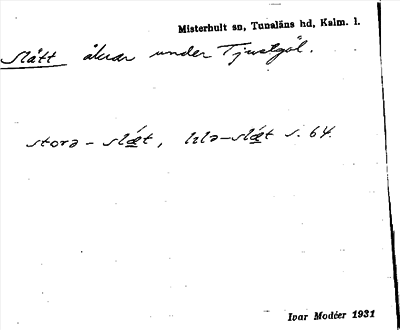 Misterhult sn, Tunaläns hd, Kalm. l.
Slätt åkrar under Tjustgöl.
stora - slǽt, lila-slǽt s. 64.
Ivar Modéer 1931